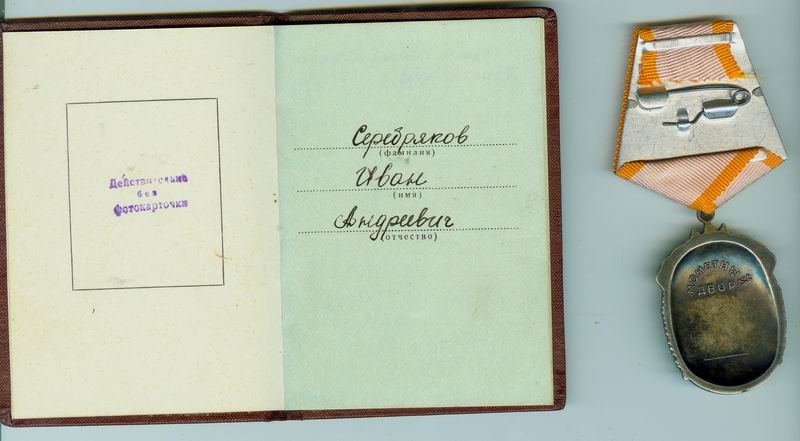 Действительно
без
фотокарточки
Серебряков
(фамилия)
Иван
(имя)
Андреевич
(отчество)
МОНЕТНЫЙ
ДВОР